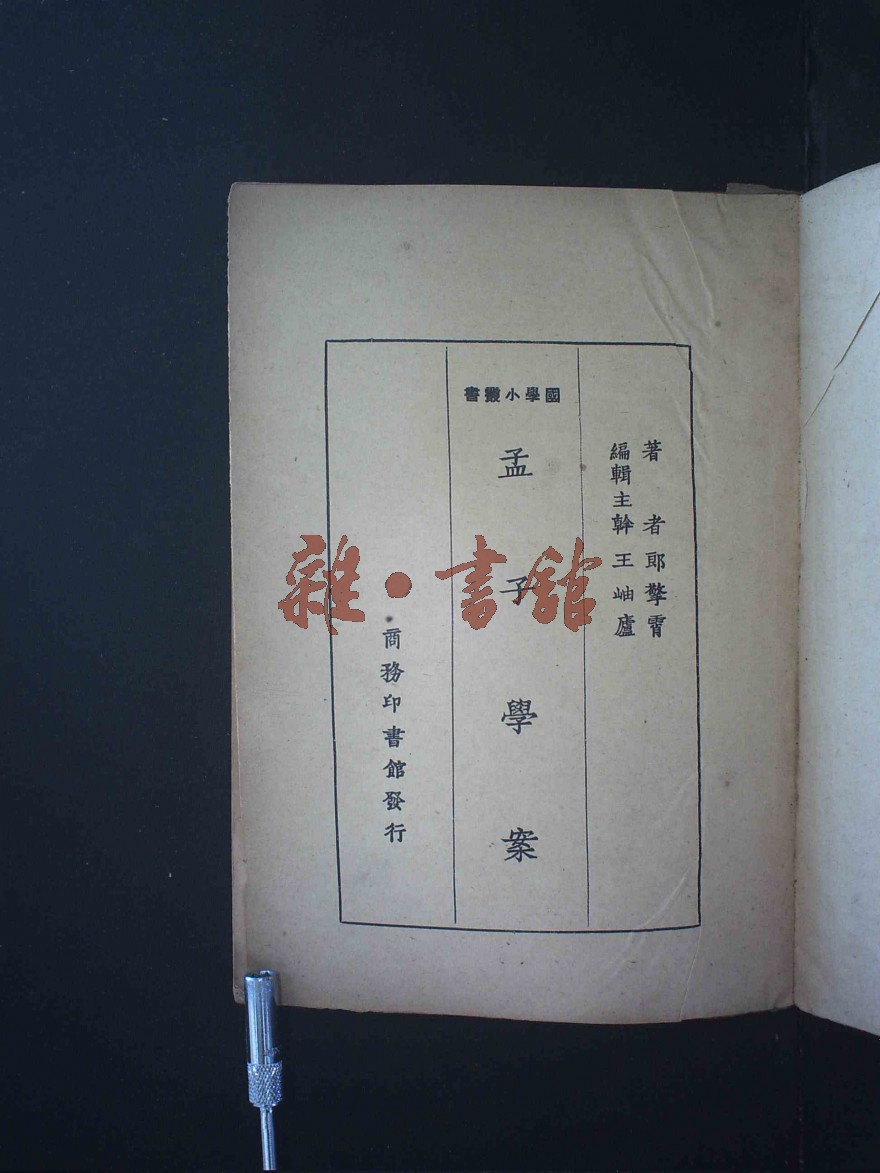 著者郎擎霄
編輯主幹王岫廬
國學小叢書
孟子學案
商務印書館發行
雜·書館